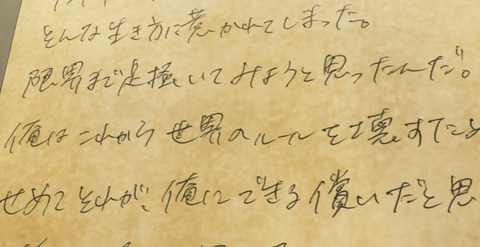 そんな生き方に惹かれてしまった。
限界まで足掻いてみようと思ったんだ。
俺はこれから世界のルールを壊す
せめてそれが、俺にできる償いだと思